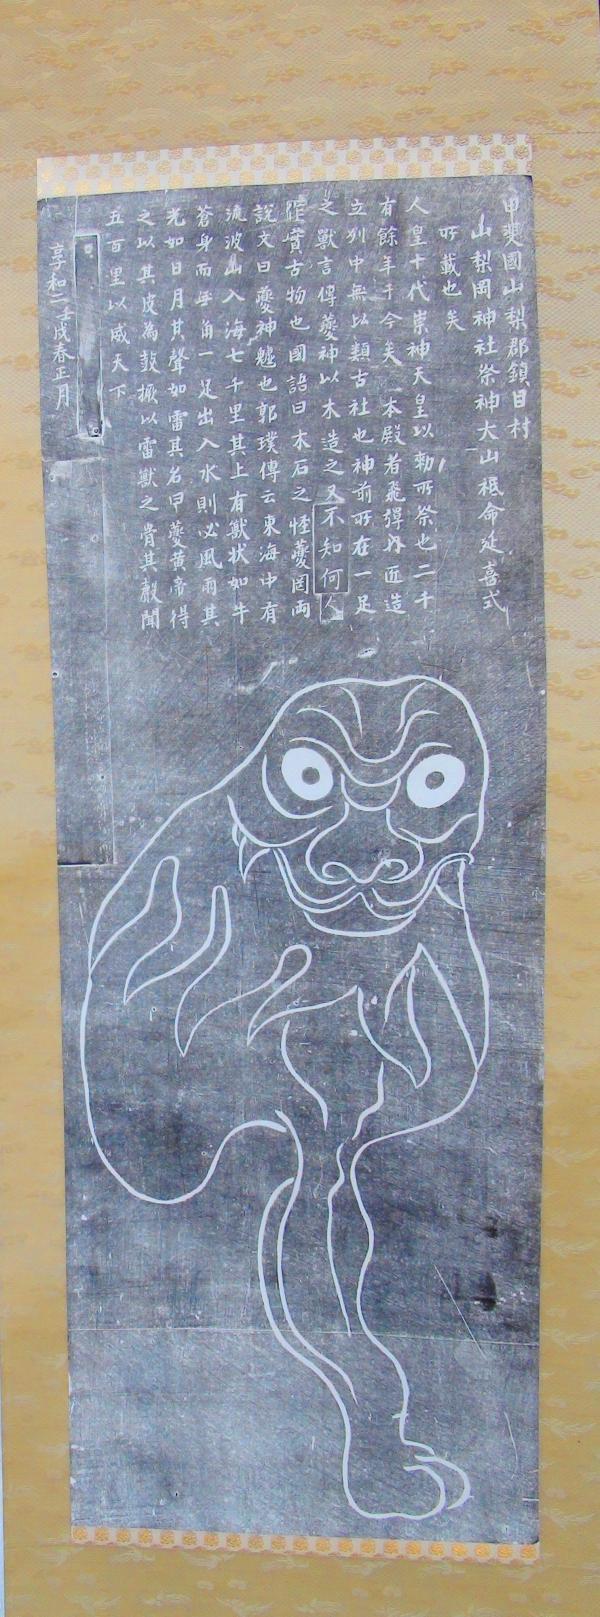 甲斐國山梨郡鎮目村
山梨岡神社祭神大山祗命延喜式
所載也矣
人皇十代崇神天皇以勅所祭也二千
有餘年于今矣 本殿者飛彈内匠造
立列中無以類古社也神前所在一足
之獸言傳夔神以木造之又不知何人
作實古物也國語曰木石之怪夔罔両
説文曰夔神魖也郭璞傳云東海中有
流波山入海七千里其上有獸状如牛
蒼身而無角一足出入水則必風雨其
光如日月其聲如雷其名曰夔黄帝得
之以其皮為鼓撅以雷獸之骨其聲聞
五百里以威天下
享和二壬戌春正月